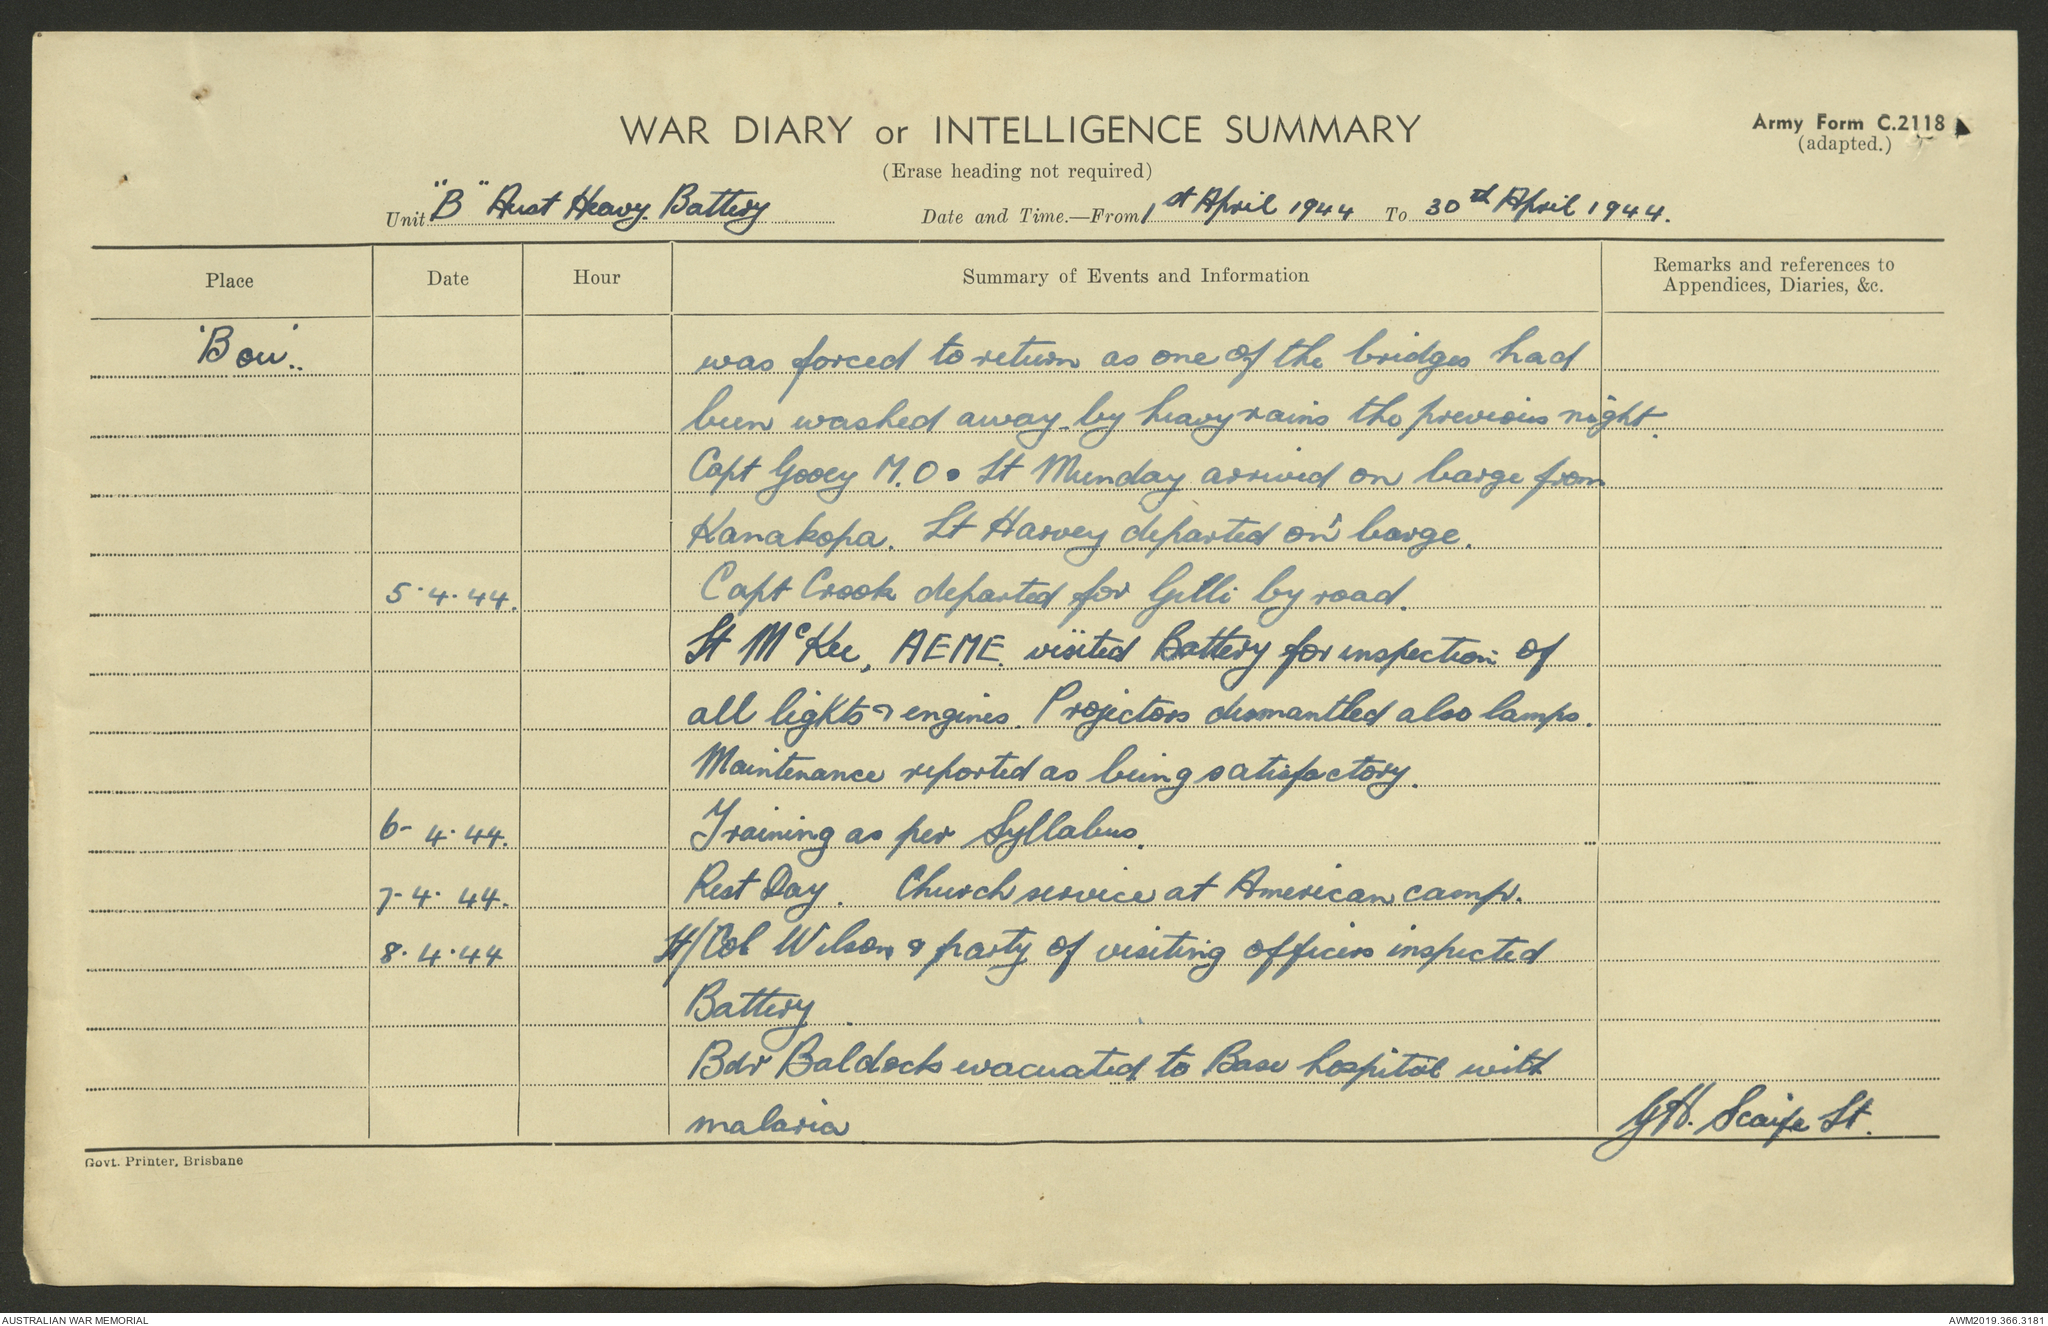 WAR DIARY or INTELLIGENCE SUMMARY
Army Form C.2118
(adapted.)
(Erase heading not required)
Unit "B" Aust Heavy Battery
Date and Time.—From 1st April 1944 To 30th April 1944.
Place Date Hour Summary of Events and Information Remarks and references to
Appendices, Diaries, &c.
'Bou'. was forced to return as one of the bridges had
been washed away by heavy rains the previous night.
Capt Gooey M.O. Lt Munday arrived on barge from
Kanakopa. Lt Harvey departed on barge.
5.4.44. Capt Crook departed for Gilli by road.
Lt McKee, AEME visited Battery for inspection of
all lights & engines. Projectors dismantled also lamps.
Maintenance reported as being satisfactory.
6-4.44. Training as per Syllabus.
7.4.44. Rest Day. Church service at American camp.
8.4.44 Lt/Col Wilson & party of visiting officers inspected
Battery.
Bdr Baldock evacuated to Base hospital with
malaria
G.H. Scaife Lt.
Govt. Printer, Brisbane
AUSTRALIAN WAR MEMORIAL
AWM2019.366.3181